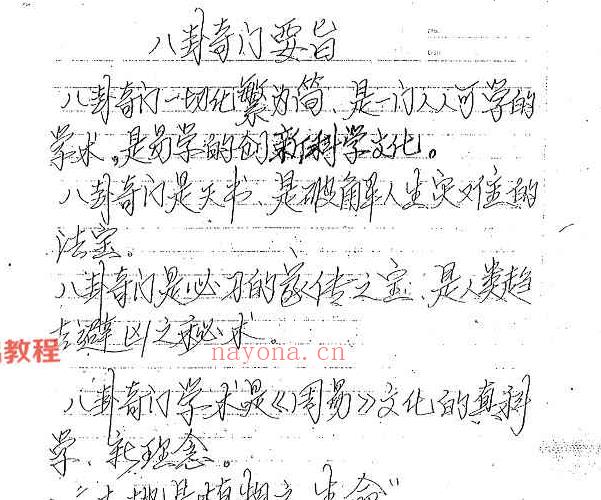 八卦奇门要旨
八卦奇门一切化繁为简、是一门人人可学的
学术，是易学的创新科学文化。
八卦奇门是天书、是破解人生灾难的
法宝。
八卦奇门是必习的家传之宝、是人类趋
吉避凶之秘术。
易教程
nayona.cn
八卦奇门学术是《周易》文化的真科
学、新理念。
"大地是植物之生命"